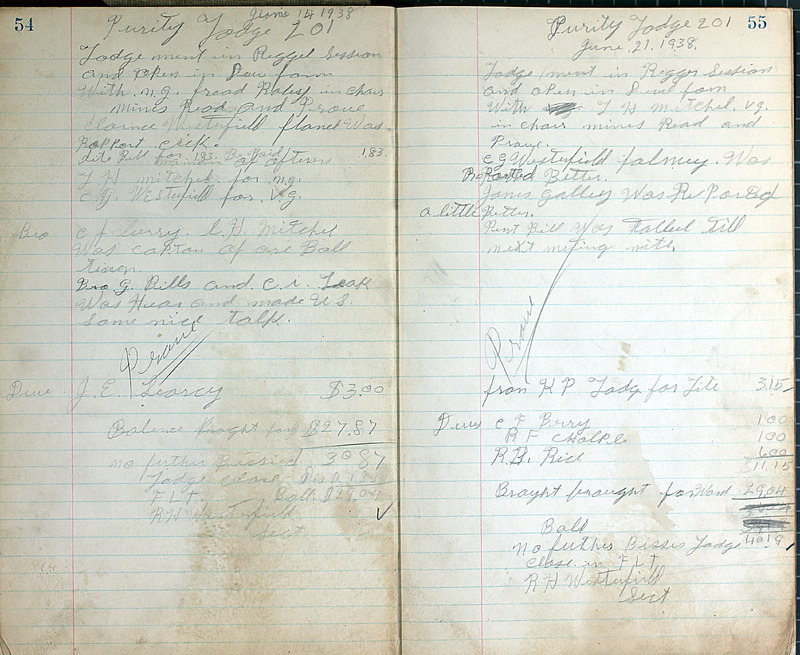 54
June 14 1938
Purity Lodge 201
Lodge ment in Reggel Session
and open in Saw form
With n.g. fread Raley in chair
mines Read and Prove
Clarnce Westerfield flanel Was
Rapport cick.
lite Bill for 183. B. Paid 183
of afters
T H mitchel for n.g.
C.G. Westerfield for V.g.
Bro C f berry. C. H. Mitchel
Was capton of are Ball
team.
Bro. G. Pills and C. i. Leak
Was Hear and made U.S.
Some nice talk.
Prove
Dues J. E. Searcy $3.00
Balence brought for $27.87
no futher Bissied 3087
Lodge close Dis 2 183
F L T. Ball. $29.04
R H Westerfield
Sect
55
Purity Lodge 201
June, 21, 1938.
Lodge ment in Regger Session
and open in Sure fom
With T H mitchel. V.g.
in chair mines Read and
Prove.
C G Westerfield falmey. Was
RePorted Better.
Janis Galley Was RePorted
a little Better.
Rent Bill Was talled till
next meting nite.
Prove
from K P Lodg for Lite 3.15
Dues C F Berry 100
R F Chalke 100
R.B. Rice 600
$11.15
Braght braught forWard 29.04
Ball 4019
no futher Bisses Lodge
Close in F L T
R H Westerfield
Sect